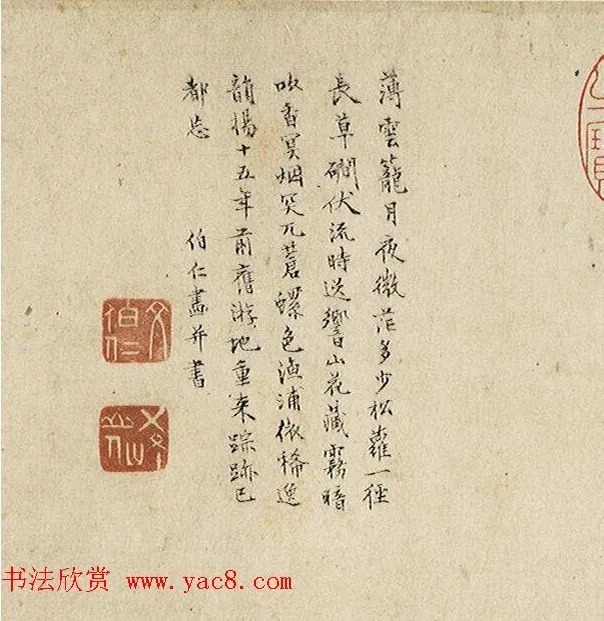 薄雲籠月夜微茫多少松蘿一徑
長草磵伏流時送響山花藏霧暗
吹香冥烟突兀蒼螺色漁浦依稀逸
韻揚十五年前舊游地重来踪跡已
都忘 伯仁畫并書
文伯仁
书法欣赏 www.yac8.com